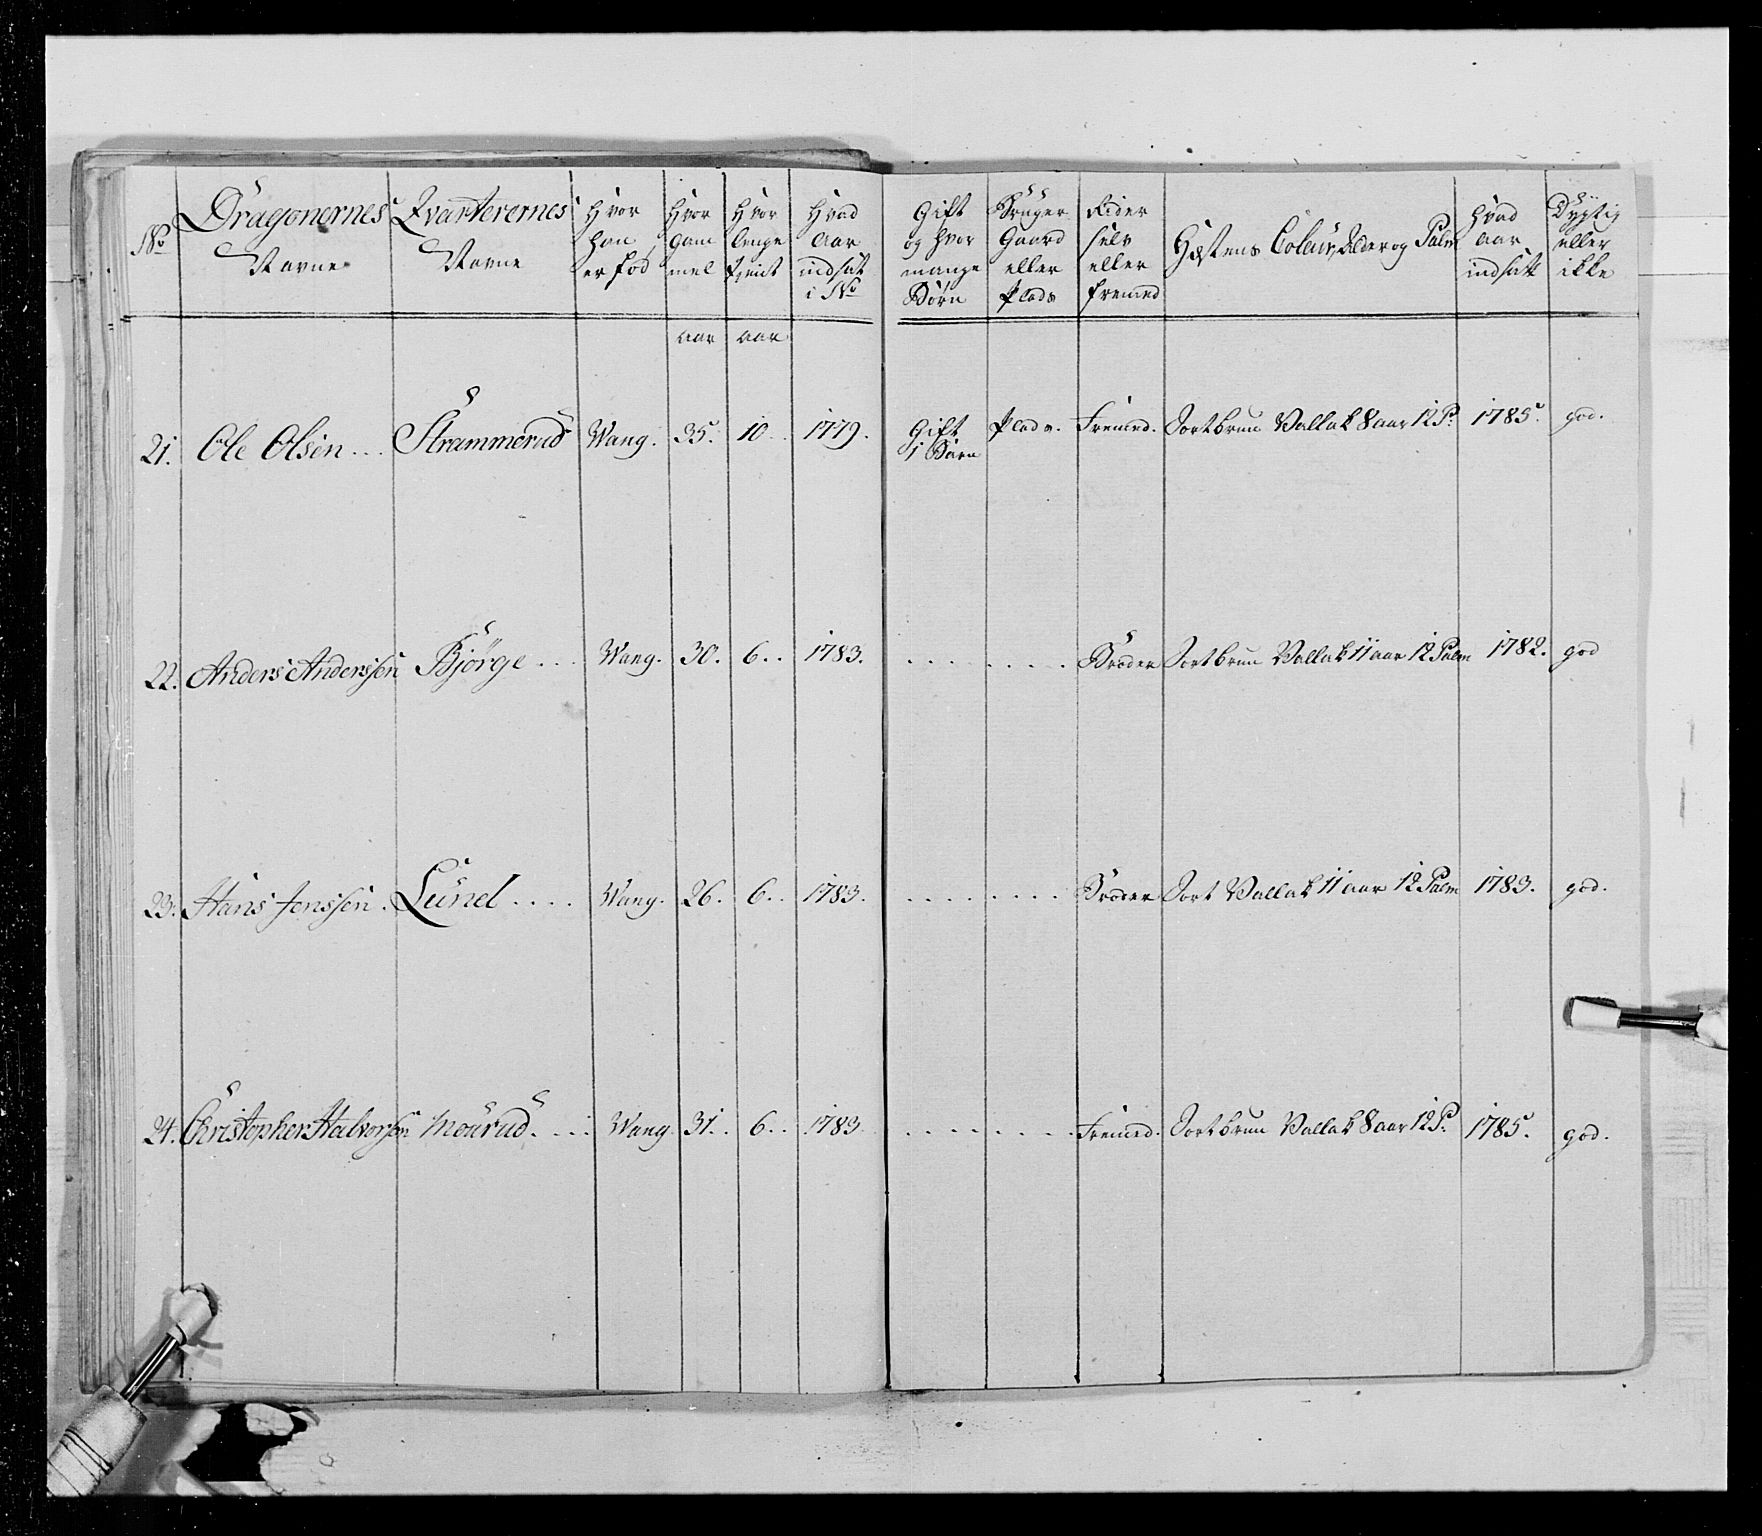 No | Dragonernes Navne | Qvarterernes Navne | Hvor han er fød | Hvor gam mel | Hvor lenge tient | Hvad Aar indsat i No | Gift og hvor mange Børn | Bruger Gaard eller Plads | Rider selv eller fremed | Hæstens Coleur, Alder og Palm | Hvad Aar indsatt | Dygtig eller ikke
aar | aar
21. | Ole Olsen... | Strammerud | Wang. | 35. | 10.. | 1779. | Gift 1 Barn | Plads. | Fremed. | Sortbrun Vallak 8 aar 12 P. | 1785. | god.
22. | Anders Anderssen | Bjørge... | Wang. | 30. | 6.. | 1783. | .... | .... | Broder | Sortbrun Vallak 11 aar 12 Palm | 1782. | god
23. | Hans Jenssen. | Lund.... | Wang. | 26. | 6.. | 1783. | .... | .... | Broder | Sort Vallak 11 aar 12 Palm | 1783. | god.
24. | Christopher Halvorsen | Mourud.... | Wang | 31. | 6.. | 1783 | .... | .... | Fremed. | Sortbrun Vallak 8 aar 12 P. | 1785. | god.